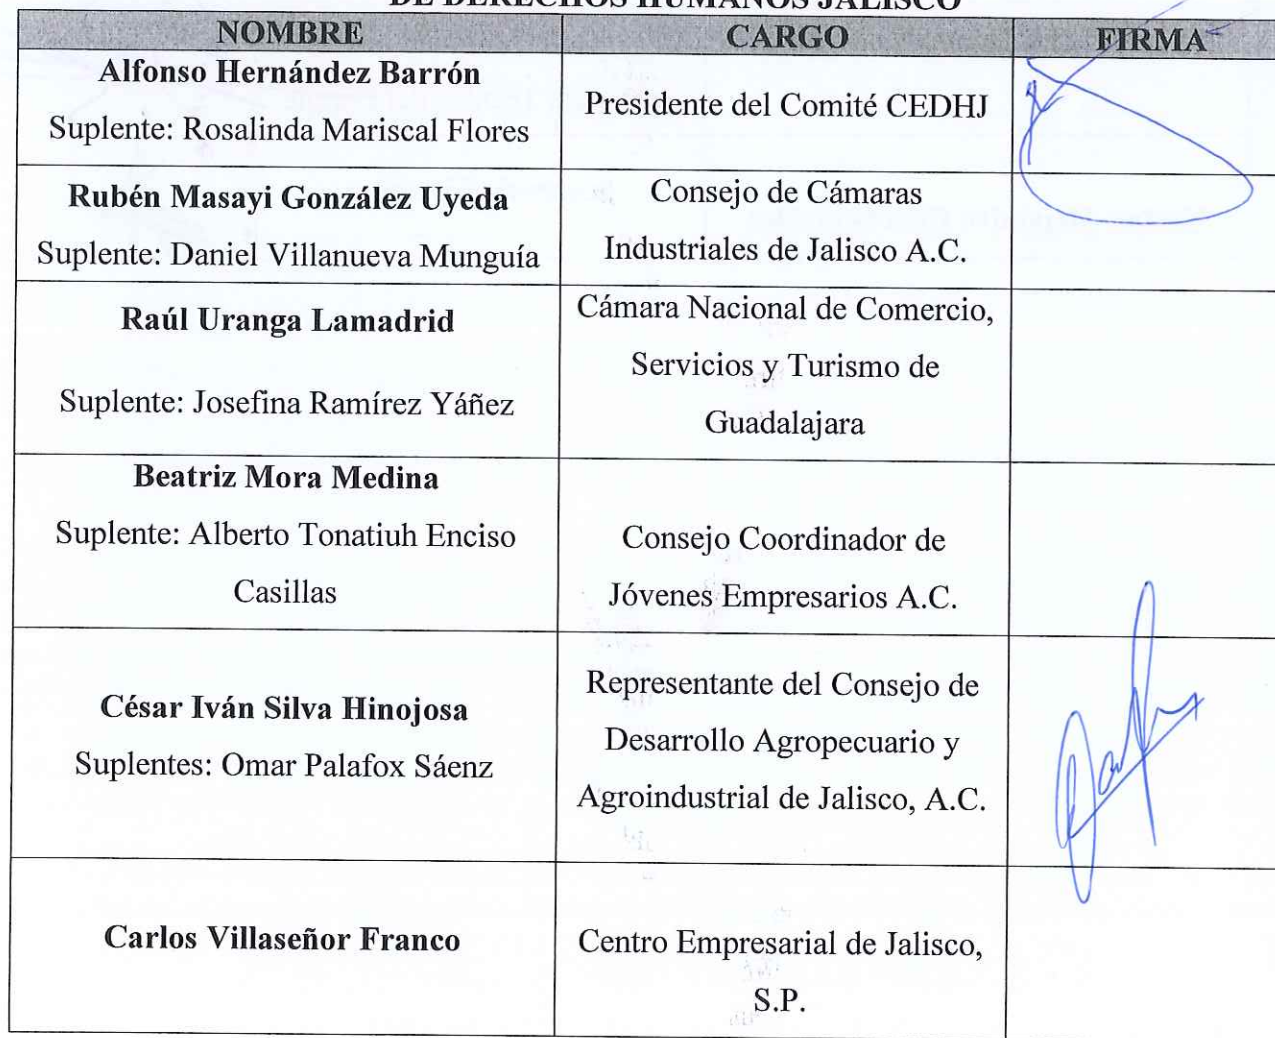 DE DERECHOS HUMANOS JALISCO
NOMBRE CARGO FIRMA
Alfonso Hernández Barrón
Suplente: Rosalinda Mariscal Flores
Presidente del Comité CEDHJ
Rubén Masayi González Uyeda
Suplente: Daniel Villanueva Munguía
Consejo de Cámaras
Industriales de Jalisco A.C.
Raúl Uranga Lamadrid
Suplente: Josefina Ramírez Yáñez
Cámara Nacional de Comercio,
Servicios y Turismo de
Guadalajara
Beatriz Mora Medina
Suplente: Alberto Tonatiuh Enciso
Casillas
Consejo Coordinador de
Jóvenes Empresarios A.C.
César Iván Silva Hinojosa
Suplentes: Omar Palafox Sáenz
Representante del Consejo de
Desarrollo Agropecuario y
Agroindustrial de Jalisco, A.C.
Carlos Villaseñor Franco
Centro Empresarial de Jalisco,
S.P.